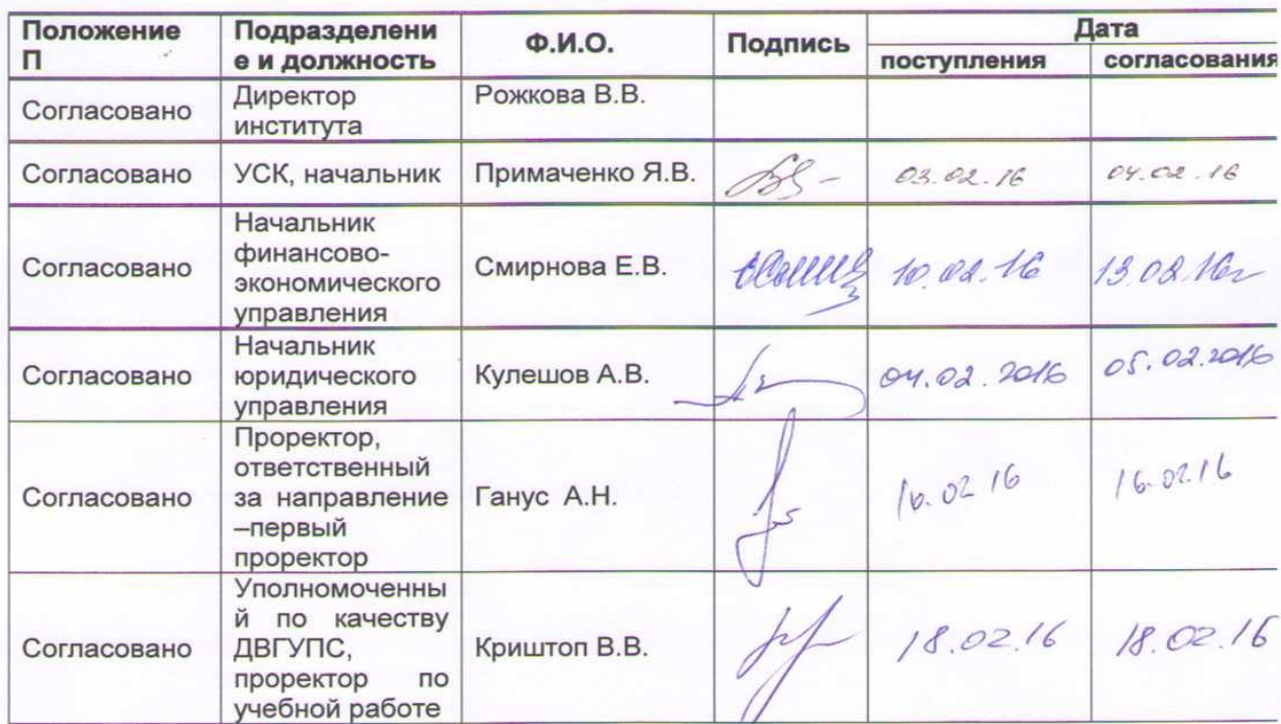 Положение П Подразделени е и должность Ф.И.О. Подпись Дата
поступления согласования
Согласовано Директор института Рожкова В.В.
Согласовано УСК, начальник Примаченко Я.В. 03.02.16 04.02.16
Согласовано Начальник финансово-экономического управления Смирнова Е.В. 10.02.16 13.02.16г
Согласовано Начальник юридического управления Кулешов А.В. 04.02.2016 05.02.2016
Согласовано Проректор, ответственный за направление –первый проректор Ганус А.Н. 16.02.16
Согласовано Уполномоченны й по качеству ДВГУПС, проректор по учебной работе Криштоп В.В. 18.02.16 18.02.16